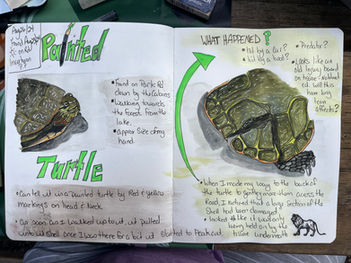 Painted
Turtle
• Found on Park Rd
down by the Cabins.
• Walking towards
the forest from the
lake.
• approx size of my
hand.
• Can tell it is a Painted turtle by Red & yellow
markings on head & Neck.
• As soon as I walked up to it, it pulled
into its shell once I was there for a bit it started to Peak out.
WHAT HAPPENED?
• hit by a car?
• hit by a boat?
• Predator?
• Looks like an
old injury based
on tissue - Natural
ed. will this
have long
term
affects?
• When I made my way to the back of
the turtle to gently move it on across the
Road, I noticed that a large section of the
Shell had been damaged.
• looked like it was only
being held on by the
tissue underneath